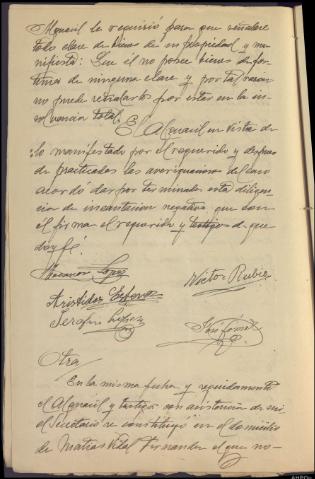 Alguacil le requirió para que señalare
toda clase de bienes de su propiedad y ma-
nifiesta: Que él no posee bienes de for-
tuna de ninguna clase y por tal razon
no puede señalarlos por estar en la in-
solvencia total.
El Alguacil en vista de
lo manifestado por el requerido y despues
de practicadas las averiguaciones del caso
acordó dar por terminada esta diligen-
cia de incautacion negativa que con
él firma el requerido y testigos de que
doy fé.
Lopez
Victor Rubio
Aristides
Serafin Lopez
Otra
En la misma fecha y seguidamente
el Alguacil y testigos con asistencia de mi
el Secretario se constituyó en el domicilio
de Matias Vidal Fernandez el que no-